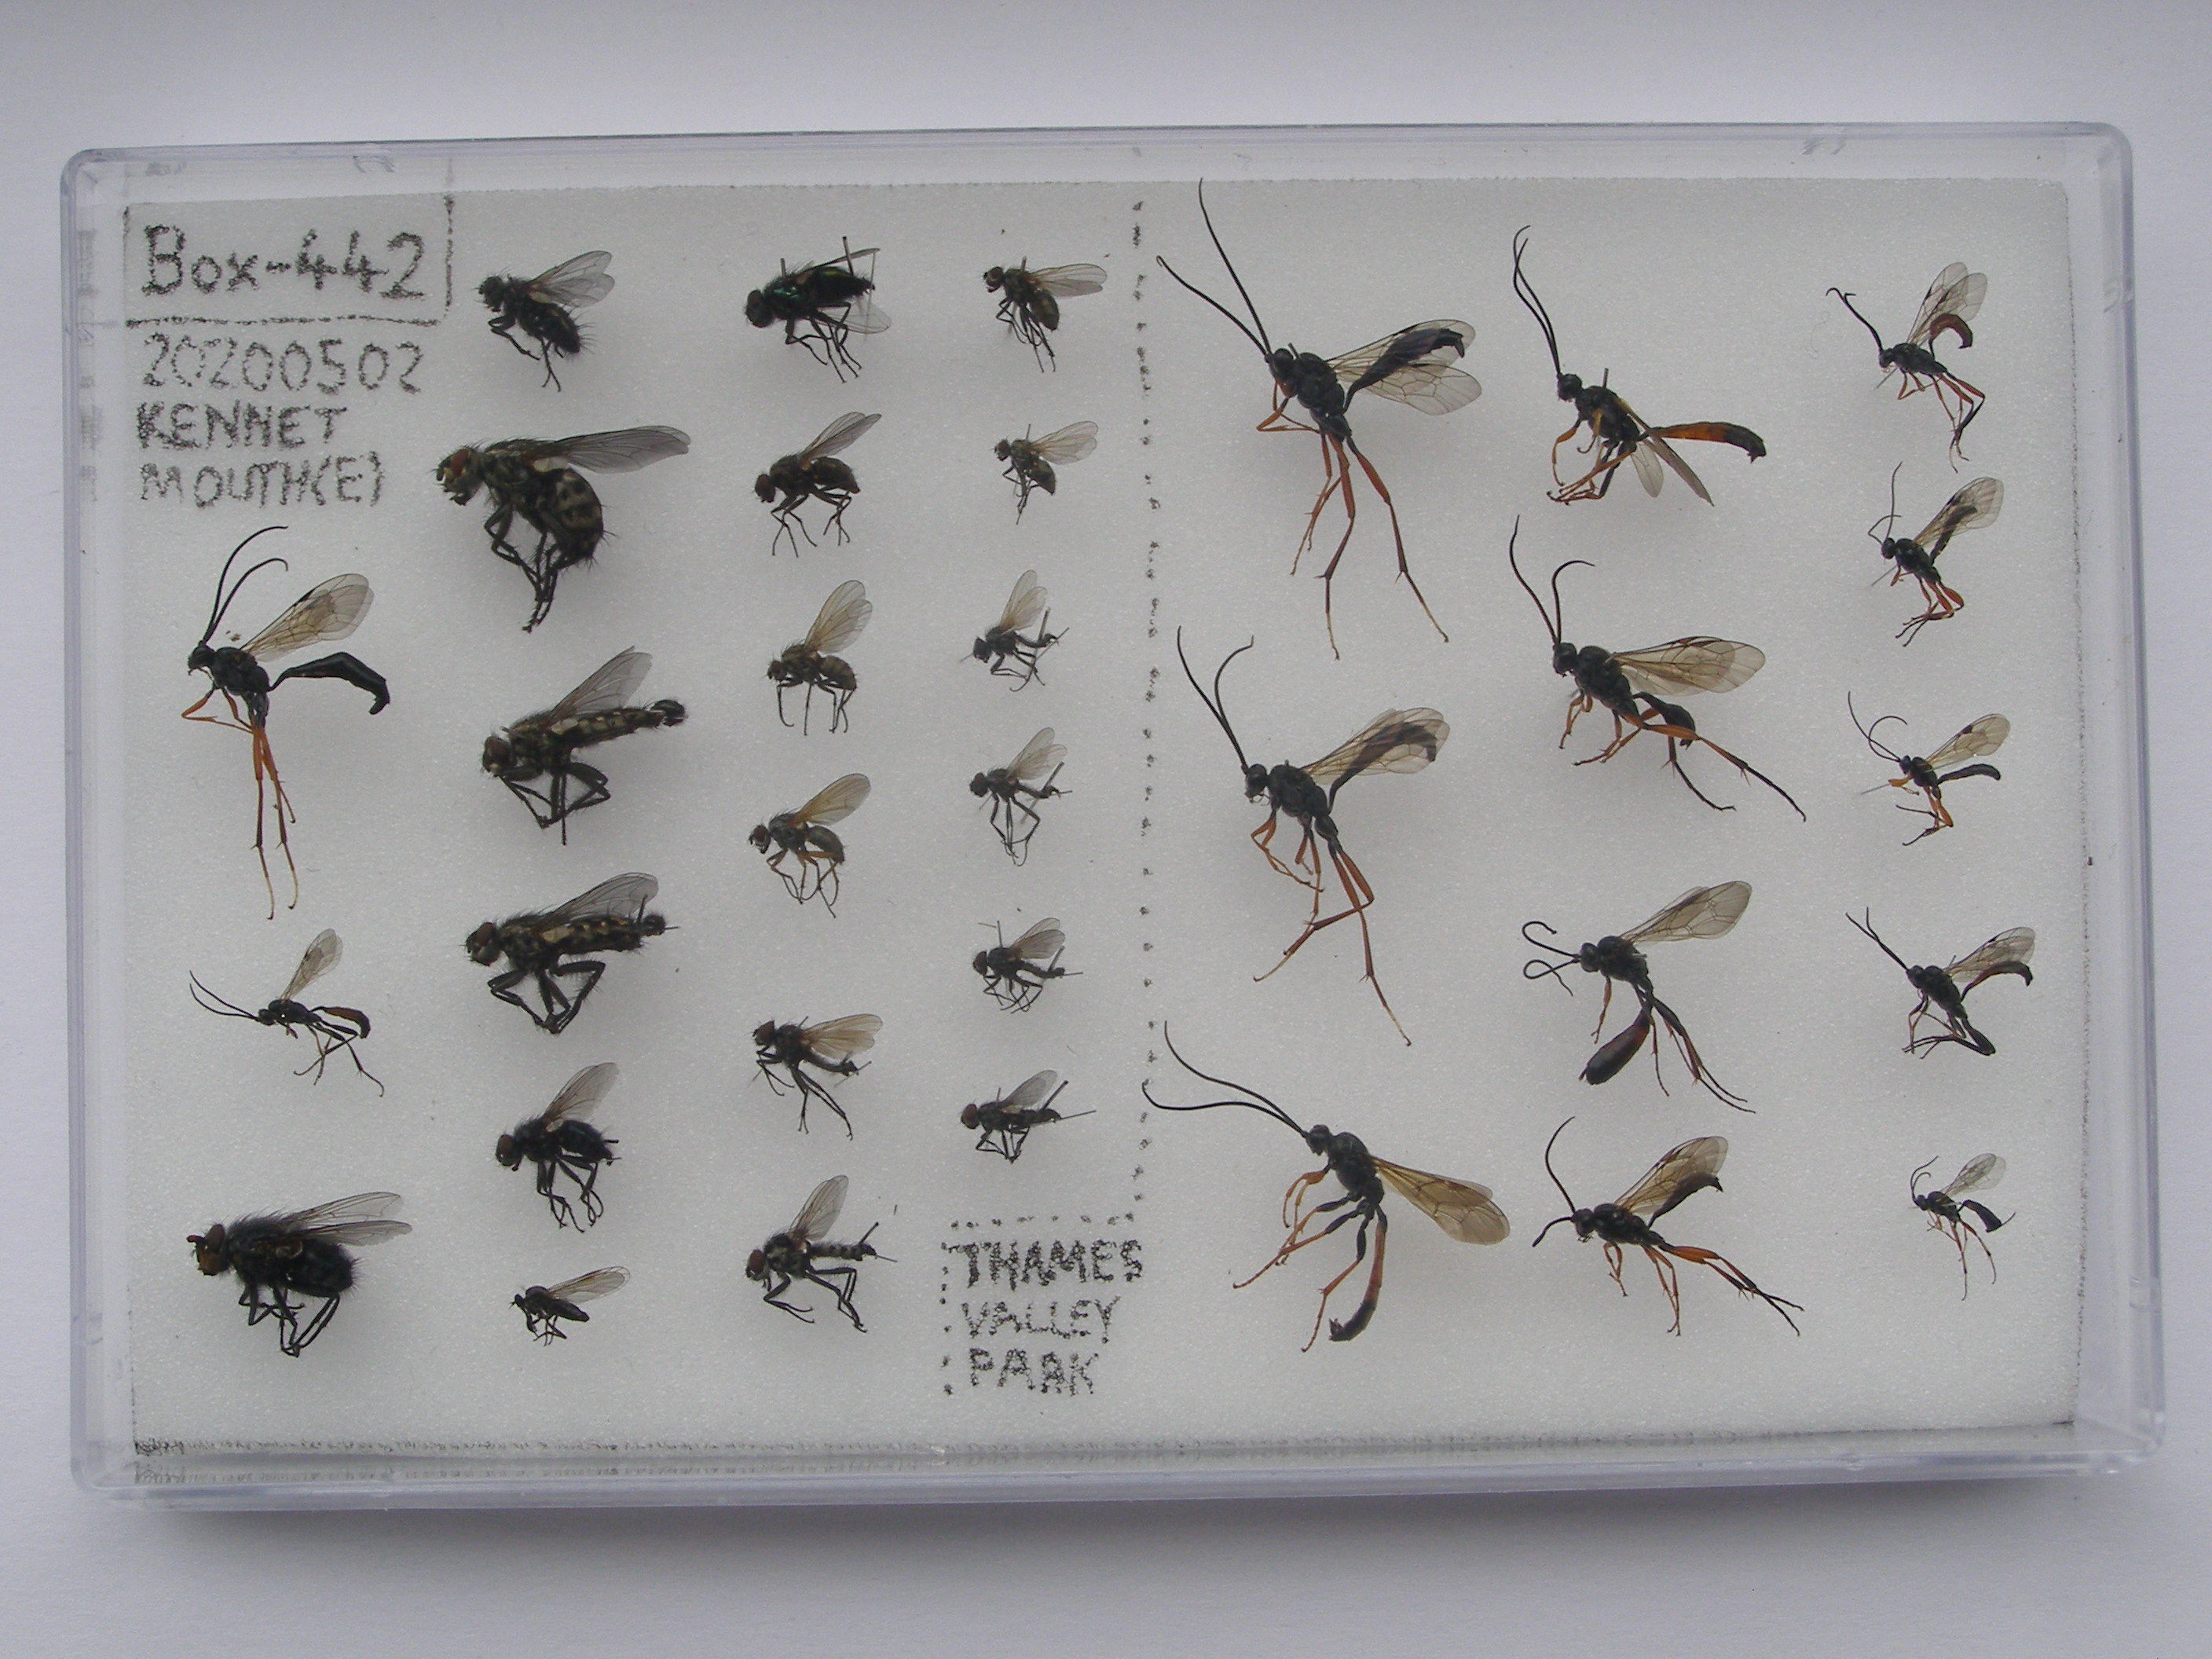 Box-442
20200502
KENNET
MOUTH(E)
THAMES
VALLEY
PARK